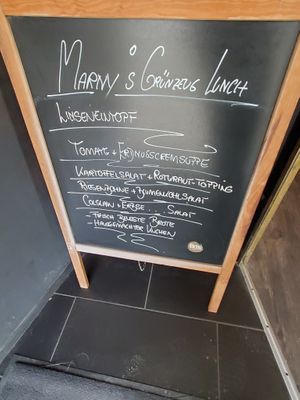 Marny's Grünzeug Lunch
Linseneintopf
Tomate + (Erd)nusscremsuppe
Kartoffelsalat + Rotkraut-Topping
Riesenbohne + Blumenkohlsalat
Colslaw + Erbse - Salat
- Frisch belegte Brote
- Hausgemachter Kuchen